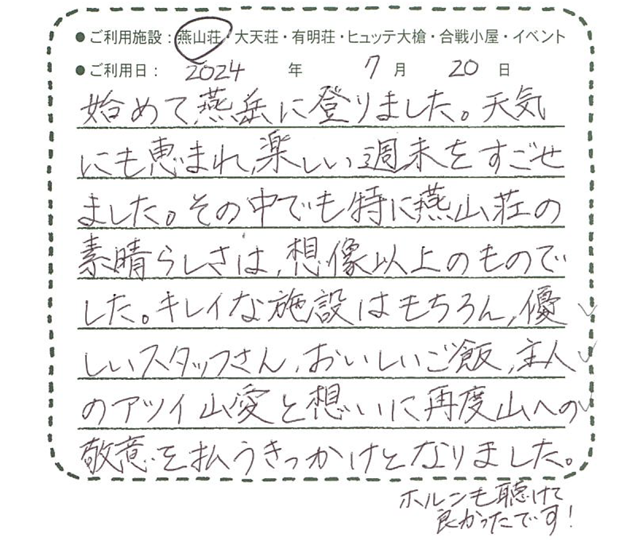 ●ご利用施設：燕山荘・大天荘・有明荘・ヒュッテ大槍・合戦小屋・イベント
●ご利用日： 2024 年 7 月 20 日
始めて燕岳に登りました。天気
にも恵まれ、楽しい週末をすごせ
ました。その中でも特に燕山荘の
素晴らしさは、想像以上のもので
した。キレイな施設はもちろん、優
しいスタッフさん、おいしいご飯、主人
のアツイ山愛と想いに再度山への
敬意を払うきっかけとなりました。
ホルンも聴けて
良かったです！